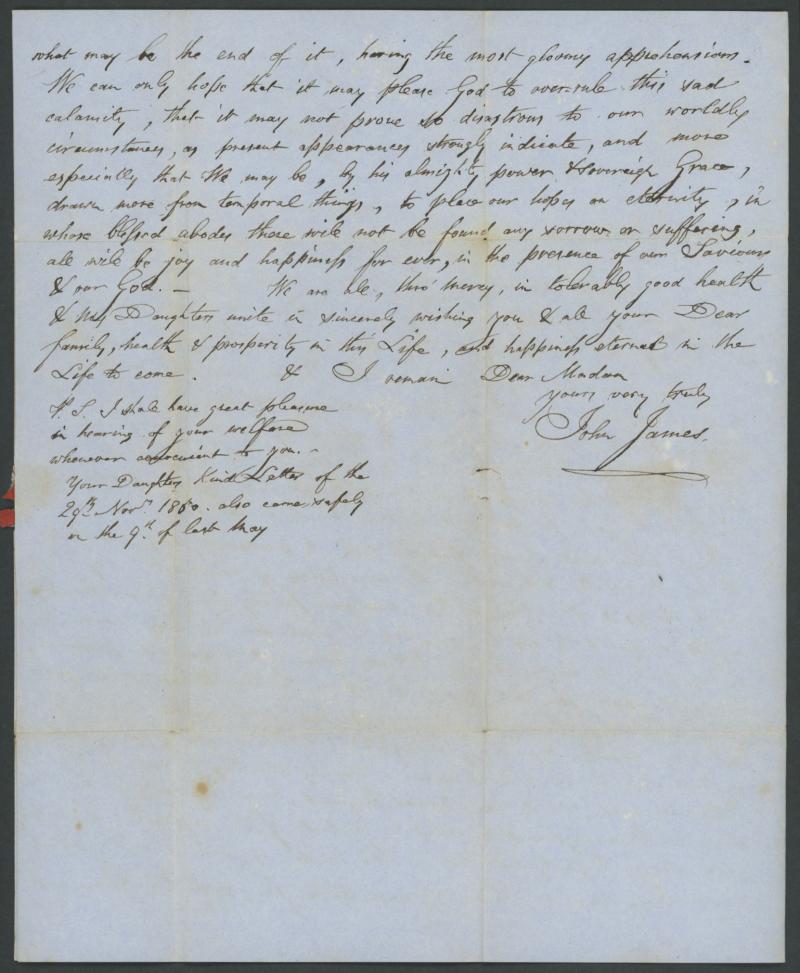 what may be the end of it, having the most gloomy apprehensions.
We can only hope that it may please God to over-rule this sad
calamity, that it may not prove so disastrous to our worldly
circumstances, as present appearances strongly indicate, and more
especially that We may be, by his almighty power & sovereign Grace,
drawn more from temporal things, to place our hopes on eternity, in
whose blessed abodes there will not be found any sorrow or suffering,
all will be joy and happiness for ever, in the presence of our Saviour
& our God. — We are all, thro' mercy, in tolerably good health
& my Daughters unite in sincerely wishing you & all your Dear
family, health & prosperity in this Life, and happiness eternal in the
Life to come. & I remain Dear Madam
yours very truly
John James.
P. S. I shall have great pleasure
in hearing of your welfare
whenever convenient to you. -
Your Daughters Kind Letter of the
29th Novr. 1850. also came safely
on the 9th. of last May